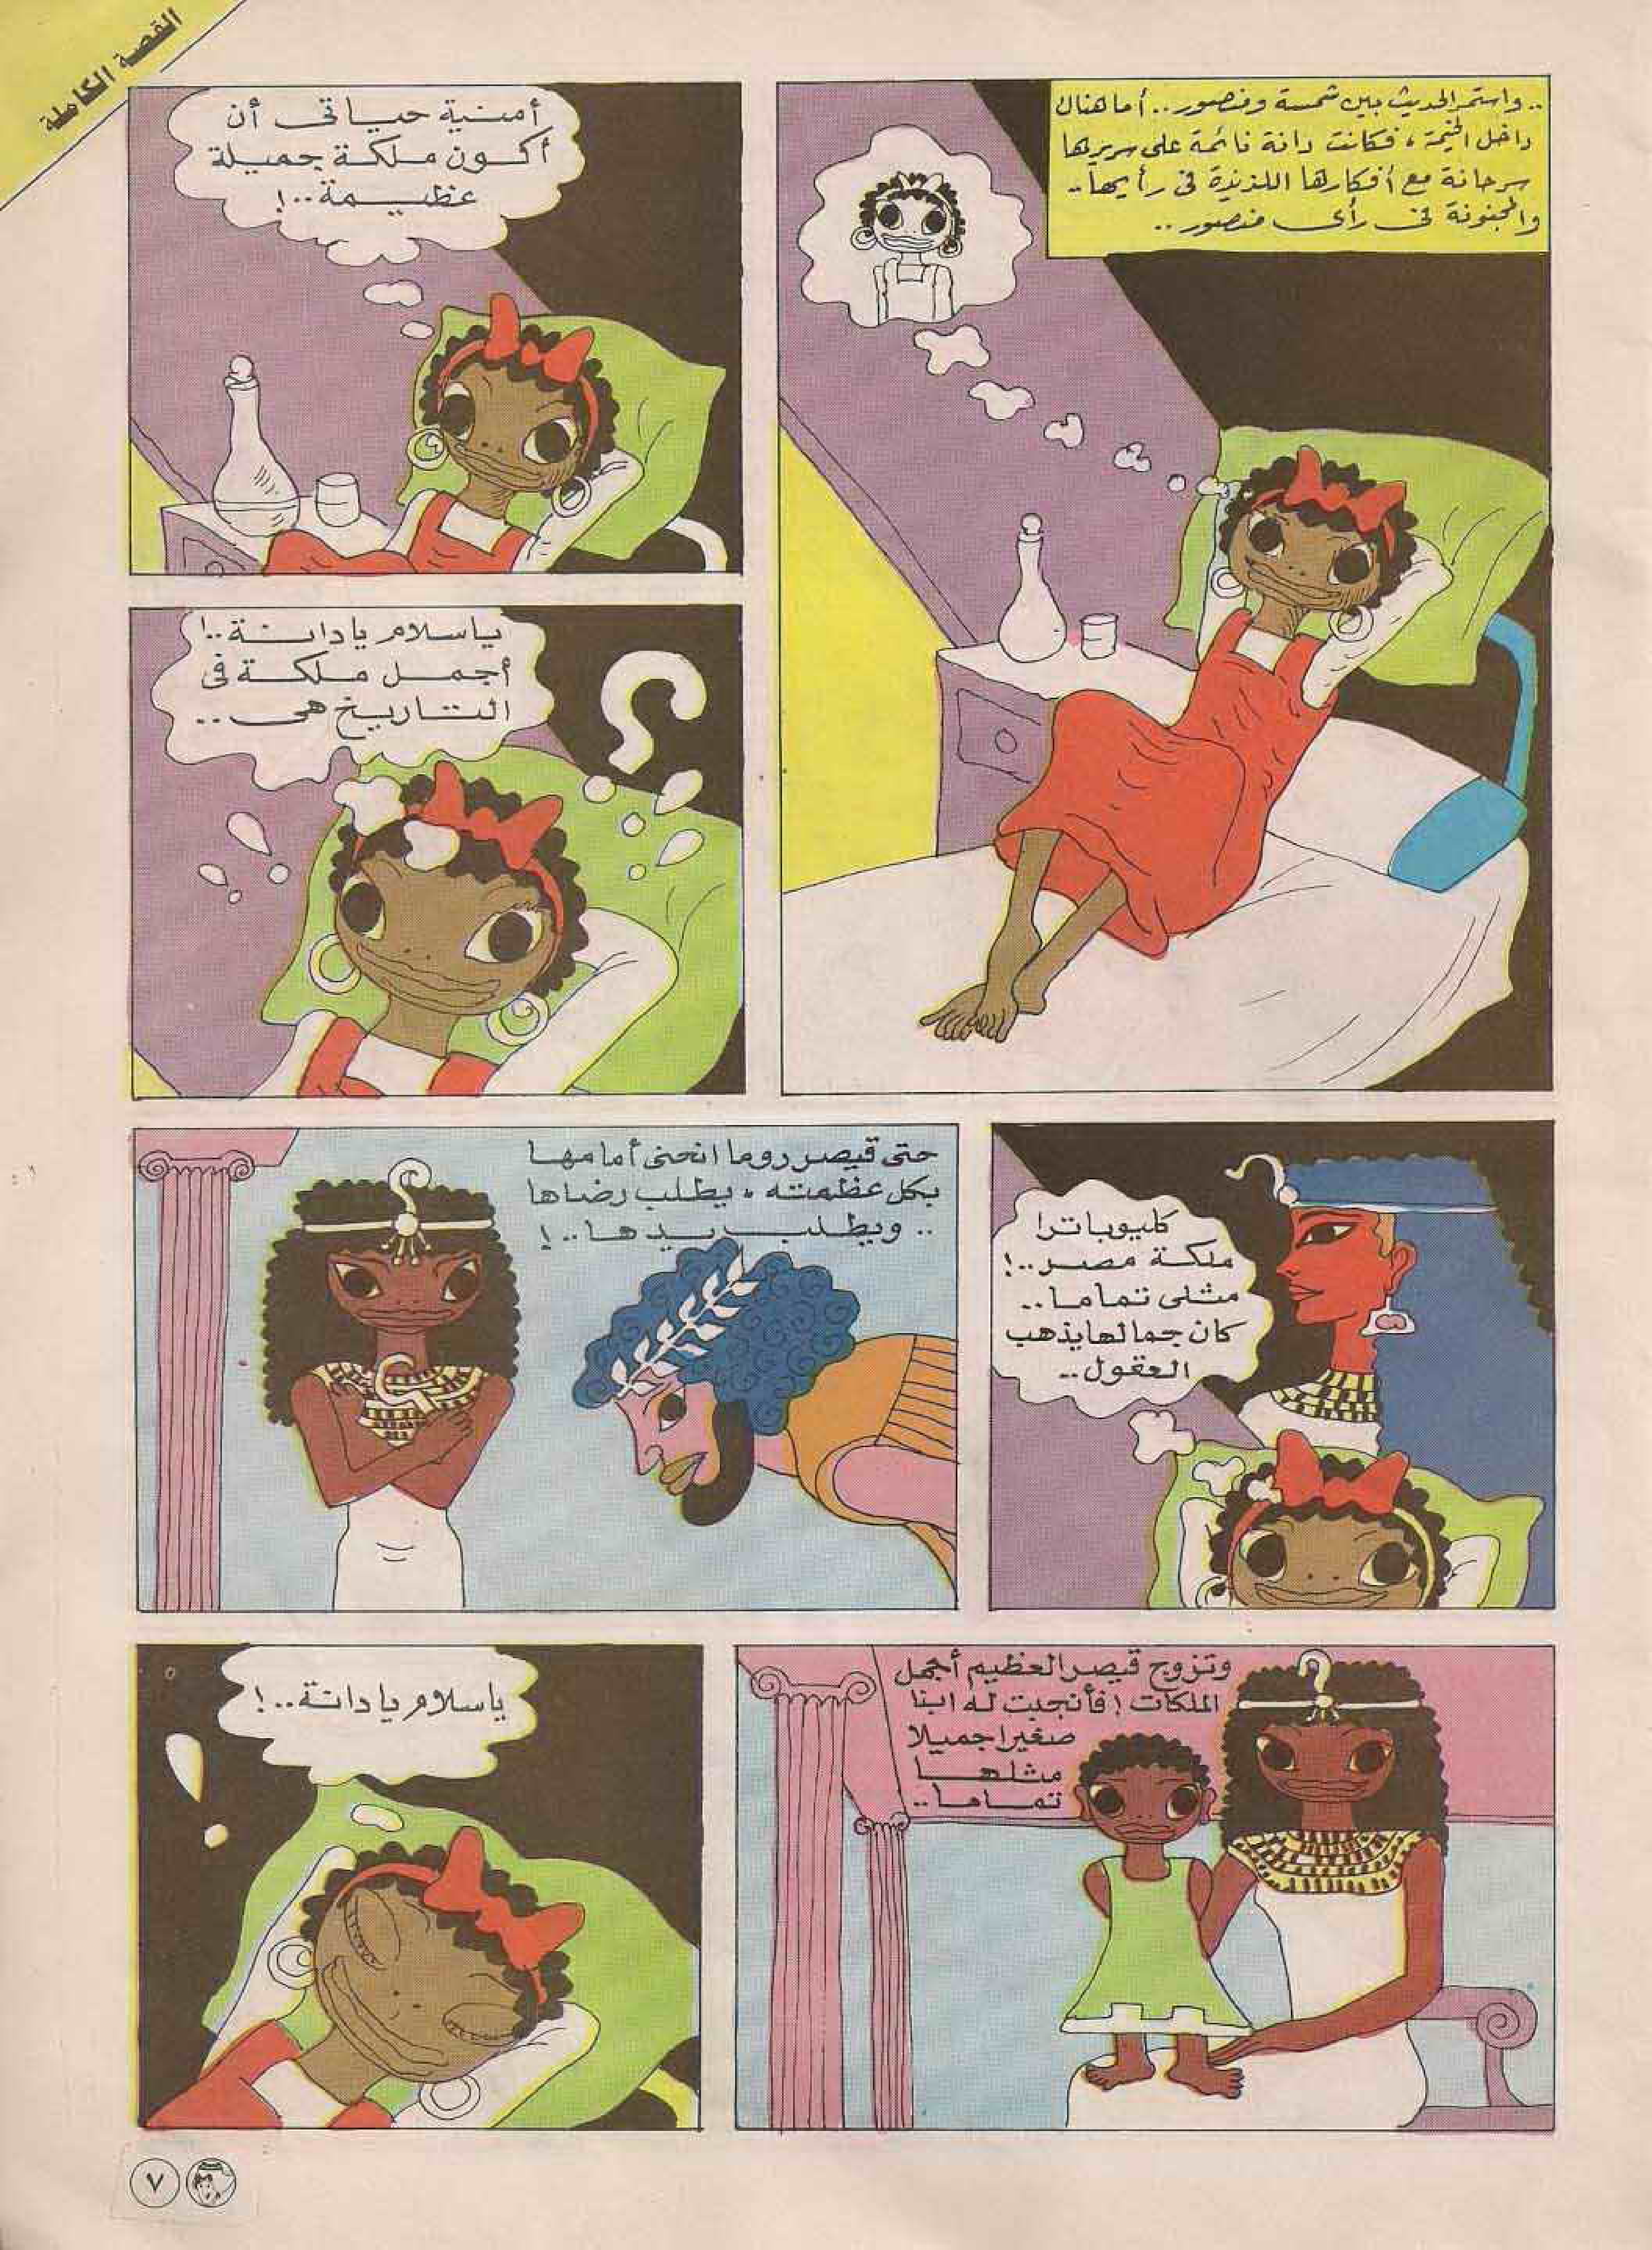 القصة الكاملة
.. واستمر الحديث بين شمسة ومنصور .. أما هناك
داخل الخيمة ، فكانت دانة نائمة على سريرها
سرحانة مع أفكارها اللذيذة فى رأيها ..
والمجنونة فى رأى منصور ..
أمنية حياتى أن
أكون ملكة جميلة
عظيمة ..!
ياسلام يا دانة ..!
أجمل ملكة فى
التاريخ هى ..
؟
كليوباترا
ملكة مصر ..!
مثلى تماما ..
كان جمالها يذهب
العقول ..
حتى قيصر روما انحنى أمامها
بكل عظمته ، يطلب رضاها
.. ويطلب يدها ..!
وتزوج قيصر العظيم أجمل
الملكات ! فأنجبت له ابنا
صغيرا جميلا
مثلها
تماما ..
ياسلام يا دانة ..!
!
٧